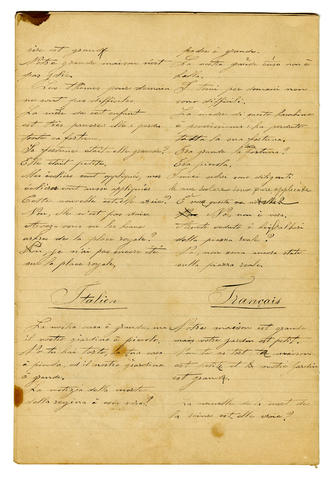 père est grand
Notre grande maison n'est
pas jolie.
Les thèmes pour demain
ne sont pas difficiles.
La mère de cet enfant
est très pauvre; elle a perdu
toute sa fortune.
Sa fortune était-elle grande?
Elle était petite.
Mes écoliers sont appliqués, vos
écolières sont aussi appliquées
Cette nouvelle est-elle vraie?
Non, elle n'est pas vraie.
Avez-vous vu les hauts
arbres de la place royale?
Non, je n'ai pas encore été
sur la place royale.
padre è grande.
La nostra grande casa non è
bella.
I temi per domani non
sono difficili.
La madre di questo bambino
è poverissima; ha perduto
tutta la sua fortuna.
Era grande la fortuna?
Era piccola.
I miei scolari sono diligenti
le sue scolare sono pure applicate
È vera questa
No, non è vera.
Avete veduto
della piazza reale?
No, non sono ancora stato
sulla piazza reale.
Italien
Français
La nostra casa è grande, ma
il nostro giardino è piccolo.
No tu hai torto, la tua casa
è piccola, ed il nostro giardino
è grande.
La notizia della morte
della regina è essa vera?
Notre maison est grande
mais notre jardin est petit.
Non tu as tort ta maison
est petite et notre jardin
est grand.
La nouvelle de la mort de
la reine est-elle vraie?